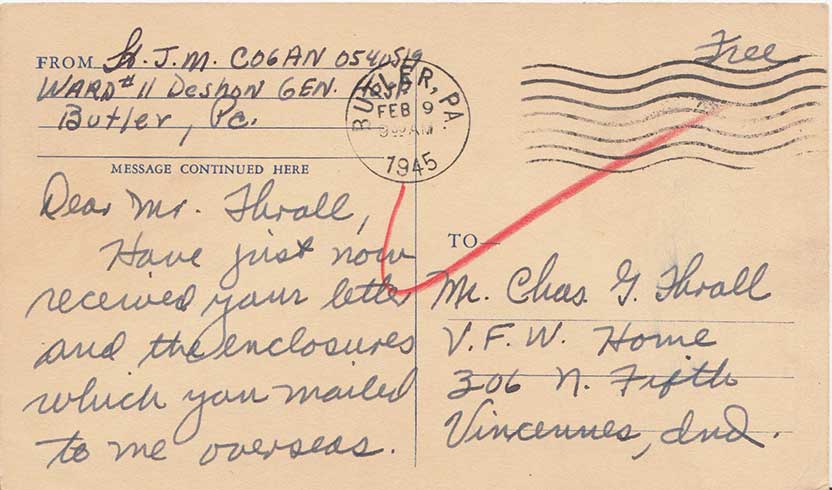 FROM Lt. J.M. COGAN 0540519
WARD #11 Deshon GEN. Hosp.
Butler, Pa.
BUTLER, PA.
FEB 9
AM
1945
Free
MESSAGE CONTINUED HERE
Dear Mr. Thrall,
Have just now
received your letter
and the enclosures
which you mailed
to me overseas.
TO—
Mr. Chas. G. Thrall
V.F.W. Home
306 N. Fifth
Vincennes, Ind.